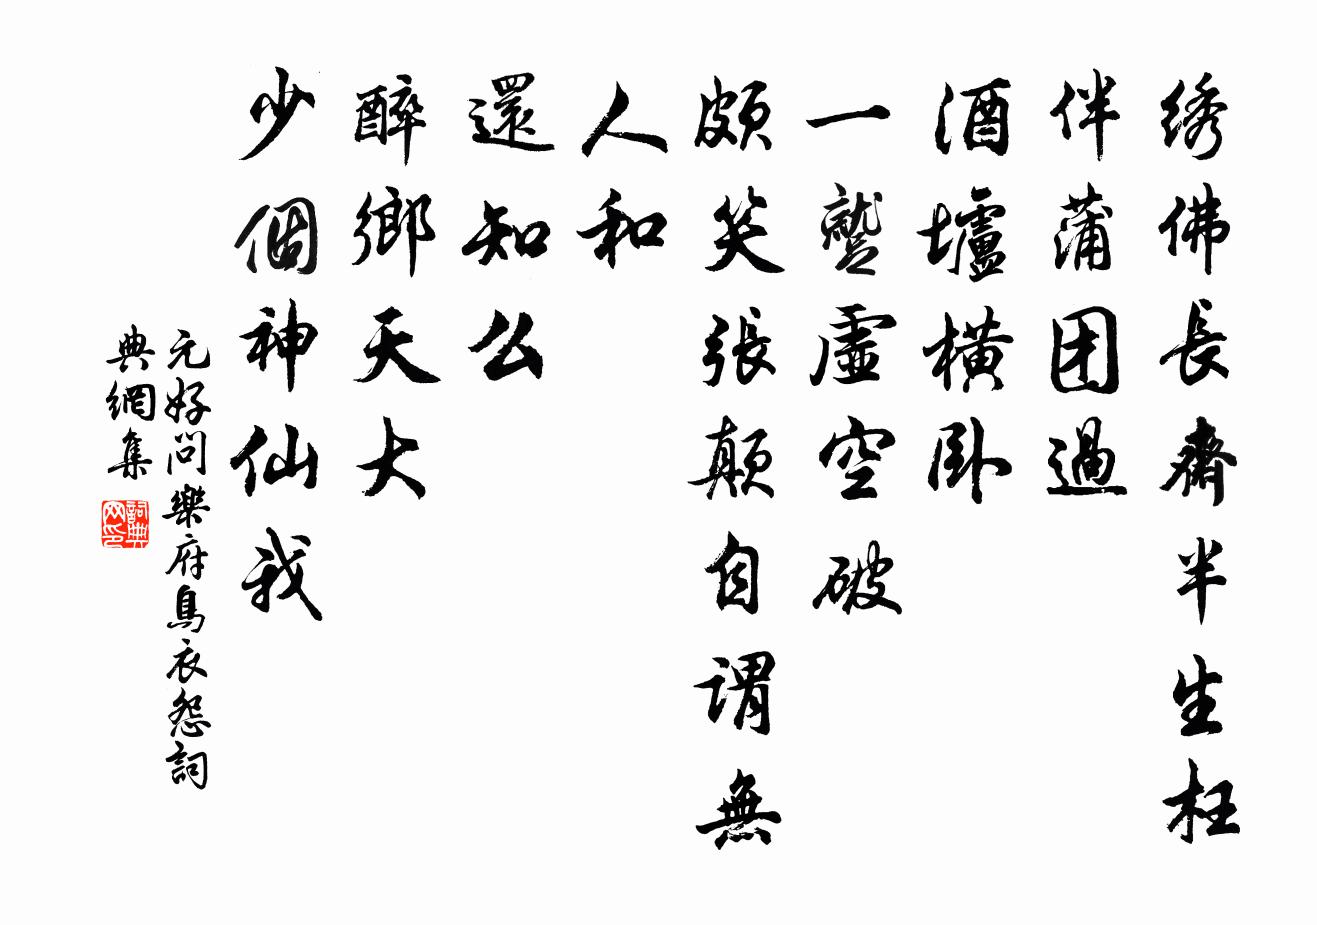 绣佛長齋半生枉
伴蒲团過
酒壚橫卧
一蹔虛空破
頗笑張顛自谓無
人和
還知么
醉鄉天大
少個神仙我
元好问樂府鳥衣怨詞
典網集
詞典网印